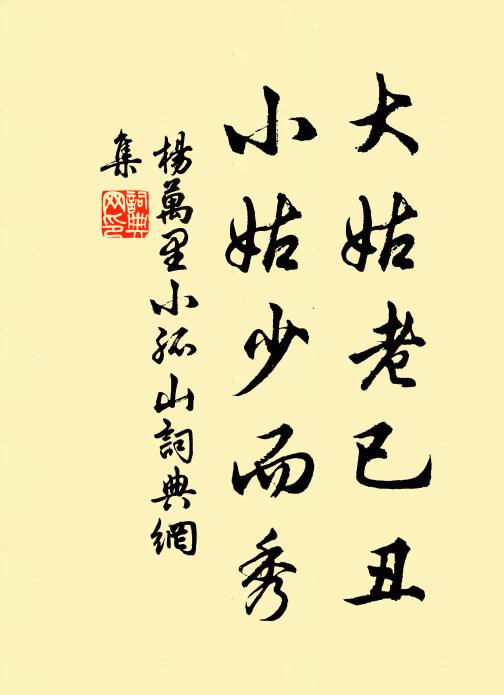 大姑老已丑
小姑少而秀
楊萬里小孤山詞典網
集
詞典
网印